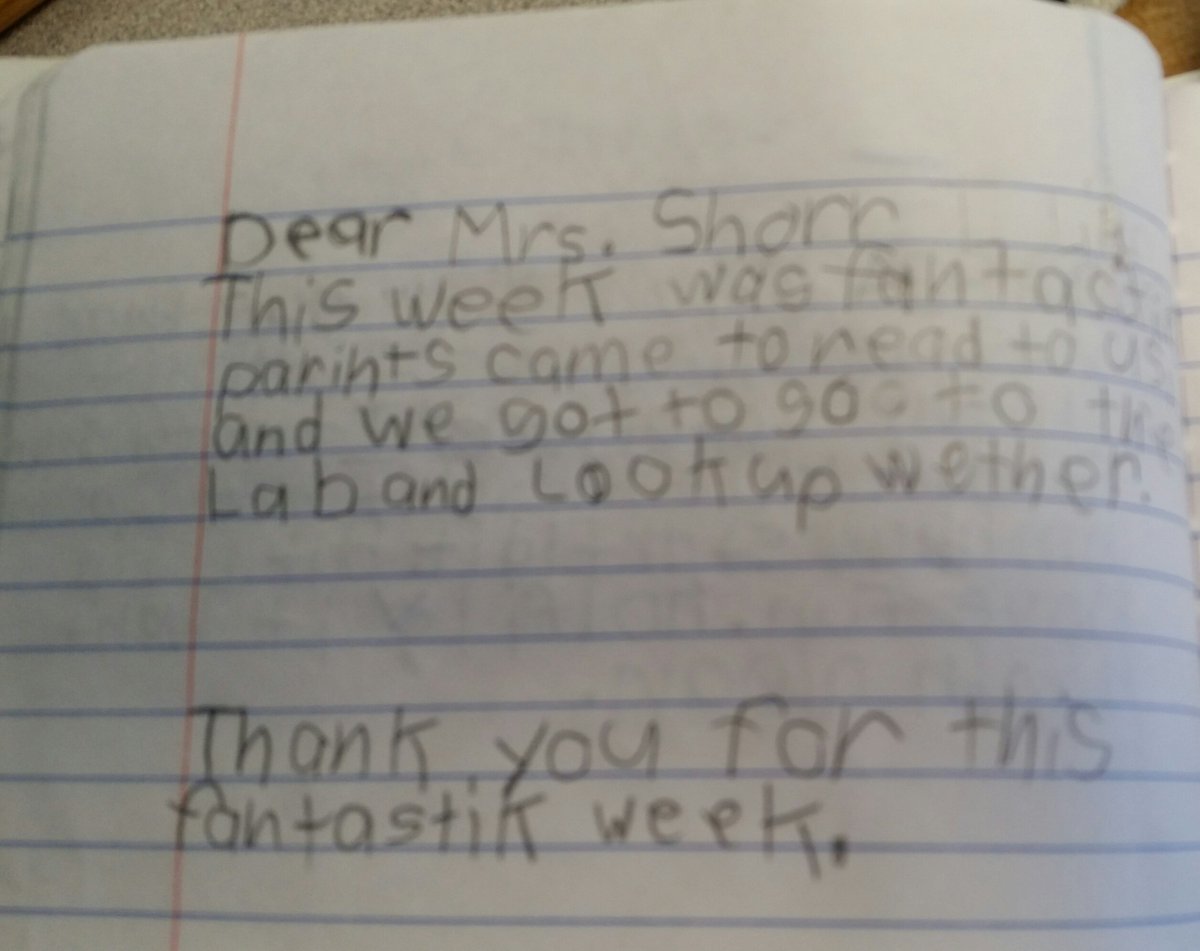 Dear Mrs. Shorr
This week was
parints came to read to us
and we got to go to the
Lab and Look up wether.
Thank you for this
fantastik week.